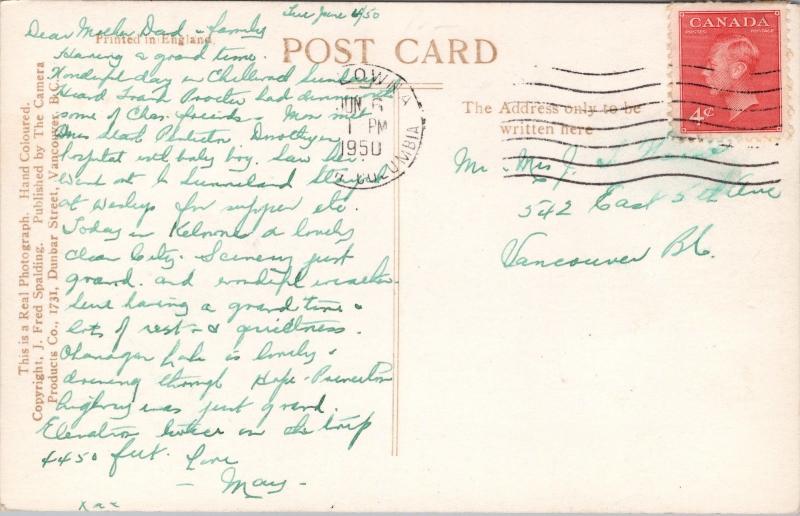 Tue June 6/50
Dear Mother Dad & family
Printed in England.
Having a grand time.
Wonderful day in Chilliwack Sunday
Heard Frank Procter had dinner
some of Chas. friends. Mon met
Mrs Penticton Dorothy in
hospital with baby boy. Saw
Went out to Summerland
at Wesleys for supper etc.
Today in Kelowna a lovely
clean City. Scenery just
grand. and wonderful weather
having a grand time &
lots of rest & quietness.
Okanagan Lake is lovely.
driving through Hope-Princeton
highway was just grand.
Elevation in the trip
4450 feet. Love
- May -
xxx
POST CARD
The Address only to be
written here
CANADA
POSTES POSTAGE
4¢
OWNA
JUN 6
1 PM
1950
COLUMBIA
Mr Mrs J.
542 East 5th Ave
Vancouver B.C.
This is a Real Photograph. Hand Coloured.
Copyright, J. Fred Spalding. Published by The Camera
Products Co., 1731, Dunbar Street, Vancouver, B.C.